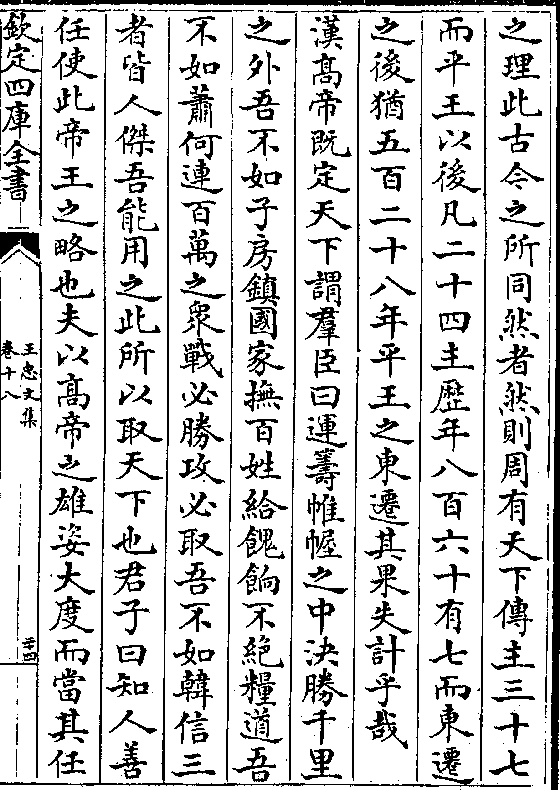 之理此古今之所同然者然則周有天下傳主三十七
而平王以後凡二十四主歷年八百六十有七而東遷
之後猶五百二十八年平王之東遷其果失計乎哉
漢髙帝既定天下謂羣臣曰運籌帷幄之中決勝千里
之外吾不如子房鎮國家撫百姓給餽餉不絶糧道吾
不如蕭何連百萬之衆戰必勝攻必取吾不如韓信三
者皆人傑吾能用之此所以取天下也君子曰知人善
任使此帝王之略也夫以髙帝之雄姿大度而當其任
欽定四庫全書
王忠文集
卷十八
二十四